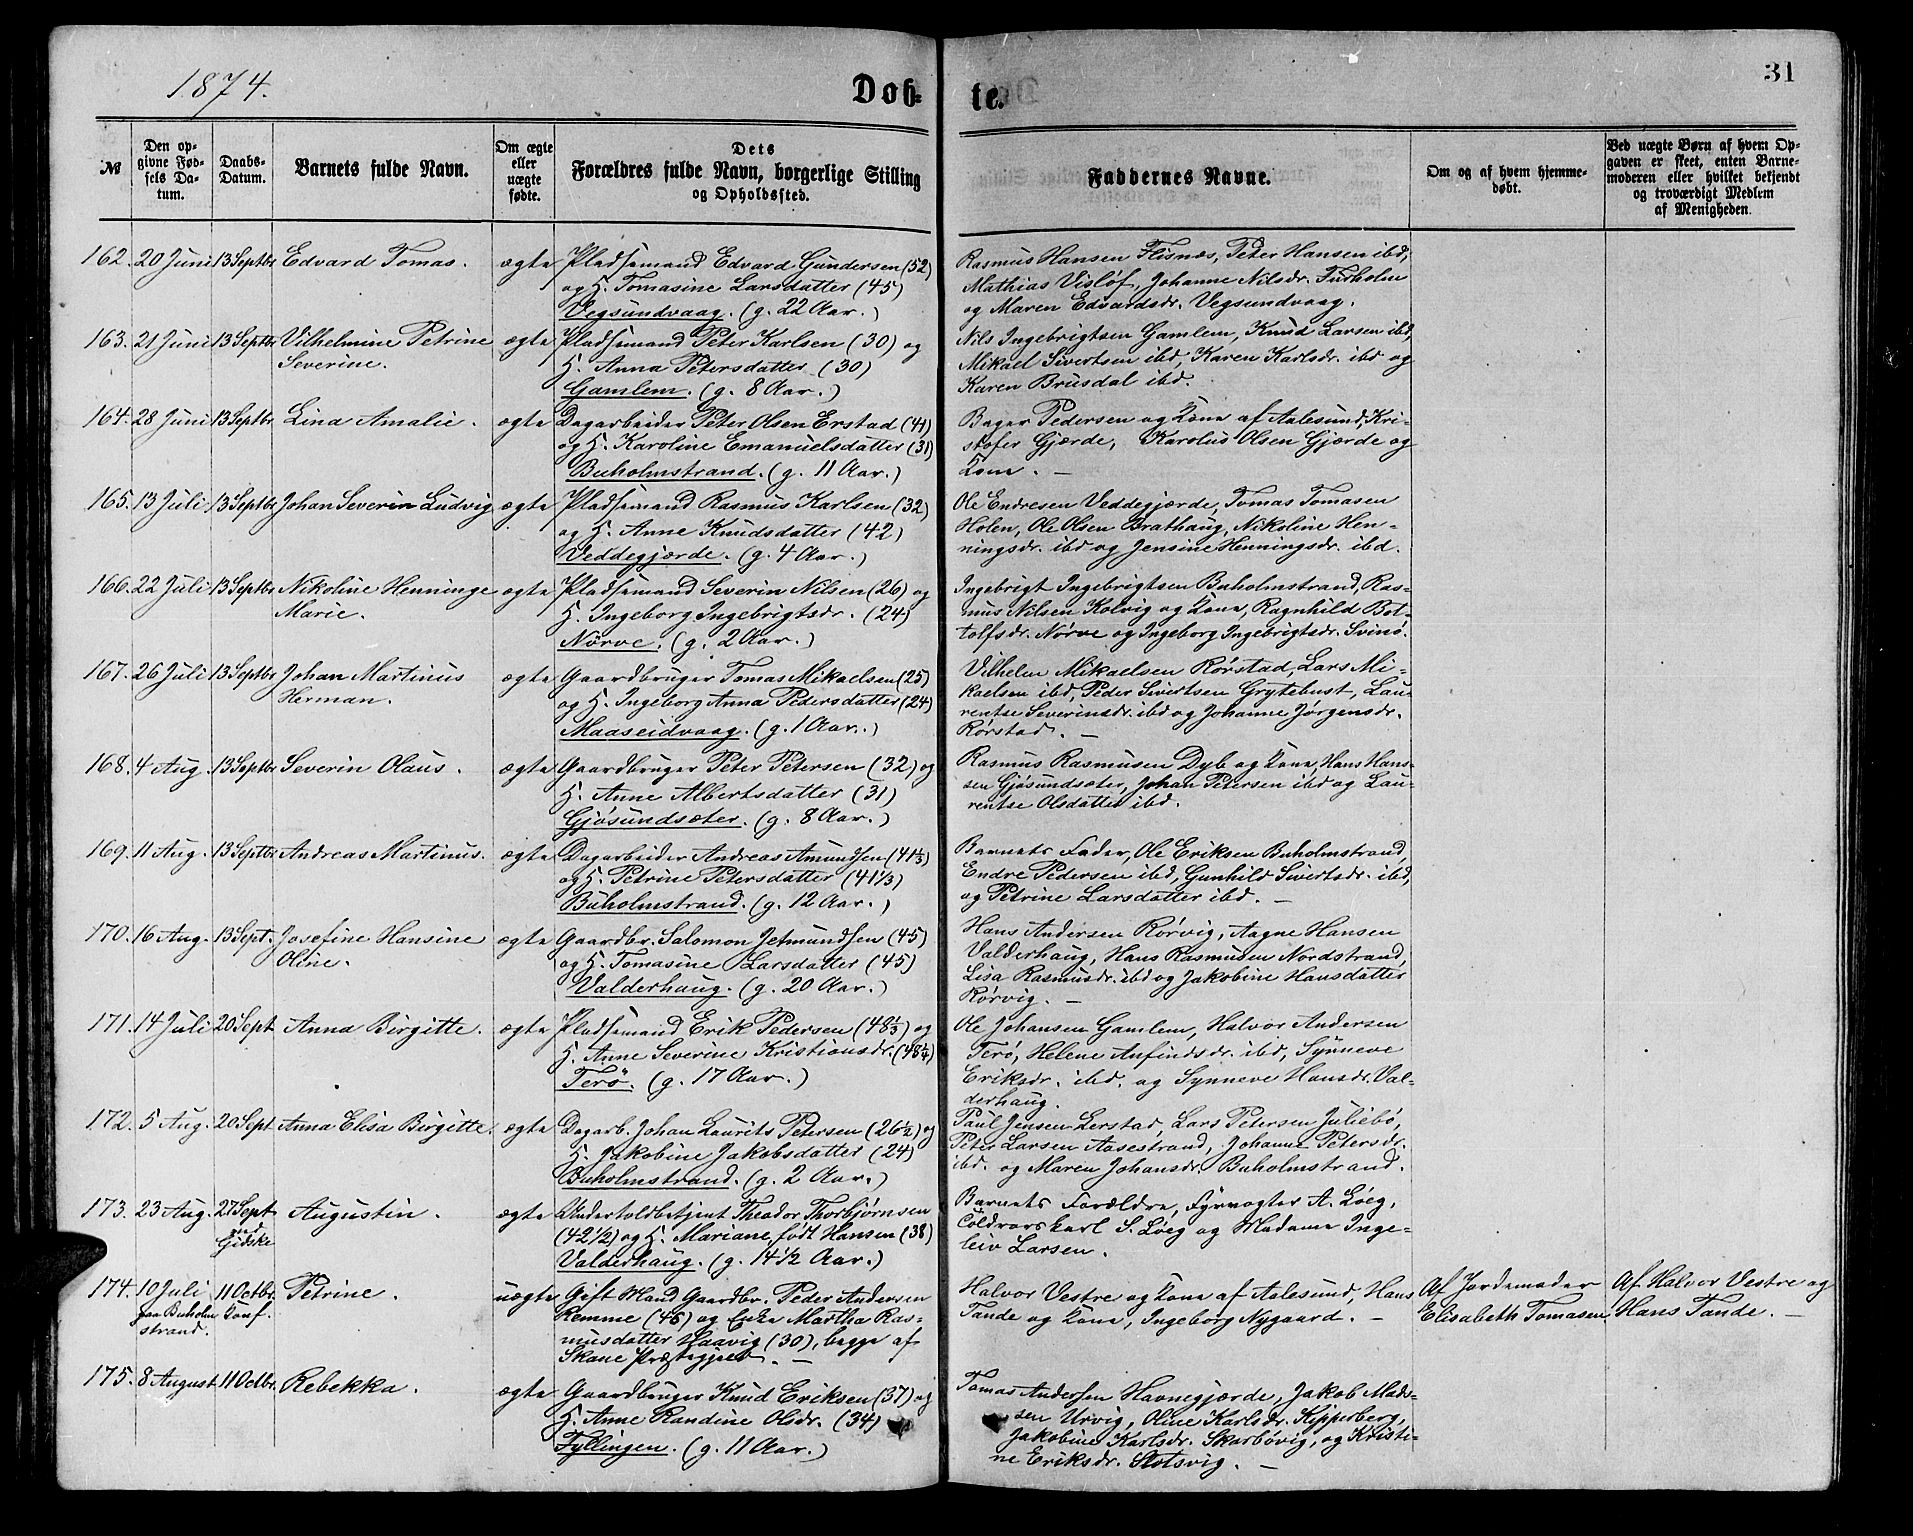 1874.
Døb-
te.
31
№
Den op-
givne Fød-
sels Da-
tum.
Daabs-
Datum.
Barnets fulde Navn.
Om ægte
eller
uægte
fødte.
Dets
Forældres fulde Navn, borgerlige Stilling
og Opholdssted.
Faddernes Navne.
Om og af hvem hjemme-
døbt.
Ved uægte Børn af hvem Op-
gaven er skeet, enten Barne-
moderen eller hvilket bekjendt
og troværdigt Medlem
af Menigheden.
162. 20 Juni 13 Septbr Edvard Tomas. ægte Pladsemand Edvard Gundersen (52)
og H. Tomasine Larsdatter (45)
Vegsundvaag. (g. 22 Aar.)
Rasmus Hansen Flisnæs, Peter Hansen ibd,
Mathias Visløf, Johanne Nilsdr. Furholm
og Maren Edvardsdr. Vegsundvaag.
163. 21 Juni 13 Septbr Vilhelmine Petrine ægte Pladsemand Peter Karlsen (30) og
Severine. H. Anna Petersdatter (30)
Gamlem. (g. 8 Aar.)
Nils Ingebrigtsen Gamlem, Knud Larsen ibd,
Mikael Sivertsen ibd, Karen Karlsdr. ibd og
Karen Brusdal ibd.
164. 28 Juni 13 Septbr Lina Amalie. ægte Dagarbeider Peter Olsen Erstad (41)
og H. Karoline Emanuelsdatter (31)
Buholmstrand. (g. 11 Aar.)
Bager Pedersen og Kone af Aalesund, Kri-
stofer Gjærde, Karolus Olsen Gjærde og
Kone. —
165. 13 Juli 13 Septbr Johan Severin Ludvig ægte Pladsemand Rasmus Karlsen (32)
og H. Anne Knudsdatter (42)
Veddegjærde. (g. 4 Aar.)
Ole Endresen Veddegjærde, Tomas Tomasen
Holen, Ole Olsen Brathaug, Nikoline Hen-
ningsdr. ibd og Jensine Henningsdr. ibd.
166. 22 Juli 13 Septbr Nikoline Henninge ægte Pladsemand Severin Nilsen (26) og
Marie. H. Ingeborg Ingebrigtsdr. (24)
Nørve. (g. 2 Aar.)
Ingebrigt Ingebrigtsen Buholmstrand, Ras-
mus Nilsen Kolvig og Kone, Ragnhild Bot-
tolfsdr. Nørve og Ingeborg Ingebrigtsdr. Svinø.
167. 26 Juli 13 Septbr Johan Martinus ægte Gaardbruger Tomas Mikaelsen (25)
Herman. og H. Ingeborg Anna Pedersdatter (24)
Maaseidvaag. (g. 1 Aar.)
Vilhelm Mikaelsen Rørstad, Lars Mi-
kaelsen ibd, Peder Sivertsen Grytebust, Lau-
rentse Severinsdr. ibd og Johanne Jørgensdr.
Rørstad. —
168. 4 Aug. 13 Septbr Severin Olaus. ægte Gaardbruger Peter Petersen (32) og
H. Anne Albertsdatter (31)
Gjøsundsæter. (g. 8 Aar.)
Rasmus Rasmusen Dyb og Kone, Hans Hans-
sen Gjøsundsæter, Johan Petersen ibd og Lau-
rentse Olsdatter ibd.
169. 11 Aug. 13 Septbr Andreas Martinus. ægte Dagarbeider Andreas Amundsen (41⅓)
og H. Petrine Petersdatter (41⅓)
Buholmstrand. (g. 12 Aar.)
Barnets Fader, Ole Eriksen Buholmstrand,
Endre Pedersen ibd, Gunhild Sivertsdr. ibd,
og Petrine Larsdatter ibd. —
170. 16 Aug. 13 Sept. Josefine Hansine ægte Gaardbr. Salomon Jetmundsen (45)
Oline. og H. Tomasine Larsdatter (45)
Valderhaug. (g. 20 Aar.)
Hans Andersen Rørvig, Aagne Hansen
Valderhaug, Hans Rasmusen Nordstrand,
Lisa Rasmusdr. ibd og Jakobine Hansdatter
Rørvig. —
171. 14 Juli 20 Sept Anna Birgitte. ægte Pladsemand Erik Pedersen (48⅓) og
H. Anne Severine Kristiansdr. (48¼)
Terö. (g. 17 Aar.)
Ole Johansen Gamlem, Halvor Andersen
Terø, Helene Anfindsdr. ibd, Synneve
Eriksdr. ibd. og Synneve Hansdr. Val-
derhaug.
172. 5 Aug. 20 Sept Anna Elisa Birgitte. ægte Dagarb. Johan Laurits Petersen (26½) og
H. Jakobine Jakobsdatter (24)
Buholmstrand. (g. 2 Aar.)
Paul Jensen Lerstad, Lars Petersen Juliebø,
Peter Larsen Aasestrand, Johanne Petersdr.
ibd. og Maren Johansdr. Buholmstrand.
173. 23 Aug. 27 Sept Augustin. ægte Undertoldbetjent Theodor Thorbjørnsen
ved (42½) og H. Mariane, født Hansen (38)
Gidske Valderhaug. (g. 14½ Aar.)
Barnets Forældre, Fyrvogter A. Løeg,
Toldrorskarl S. Løeg og Madame Inge-
leiv Larsen.
174. 10 Juli 11 Octbr. Petrine. uægte Gift Mand Gaardbr. Peder Andersen
paa Buholm- Konf. Remme (46) og Enke Martha Ras-
strand. musdatter Haavig (30), begge af
Skane Præstegjeld. —
Halvor Vestre og Kone af Aalesund, Hans
Tande og Kone, Ingeborg Nygaard. —
Af Jordemoder
Elisabeth Tomasen.
Af Halvor Vestre og
Hans Tande. —
175. 8 August 11 Octbr. Rebekka. ægte Gaardbruger Knud Eriksen (37) og
H. Anne Randine Olsdr. (34)
Fyllingen. (g. 11 Aar.)
Tomas Andersen Havnegjærde, Jakob Mads-
sen Urvig, Oline Karlsdr. Kipperberg,
Jakobine Karlsdr. Skarbøvig, og Kristi-
ne Eriksdr. Slotsvig. —